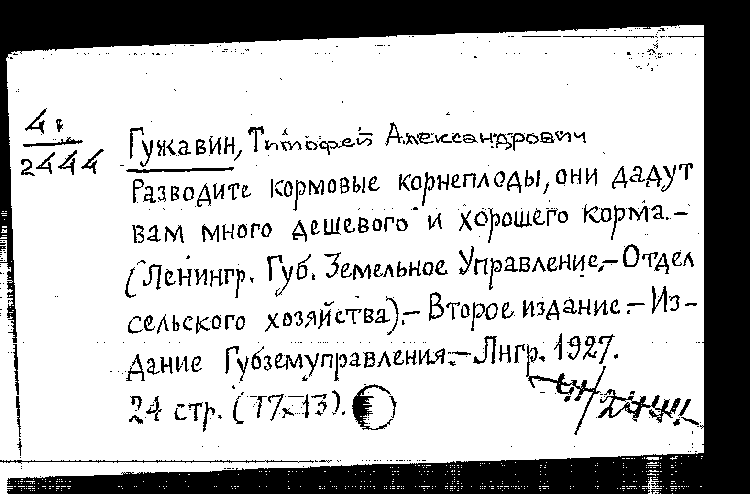 4в
2444
Гужавин, Тимофей Александрович
Разводите кормовые корнеплоды, они дадут
вам много дешевого и хорошего корма.-
(Ленингр. Губ. Земельное Управление.- Отдел
сельского хозяйства).- Второе издание.- Из-
дание Губземуправления.- Лнгр. 1927.
24 стр. (17х13).